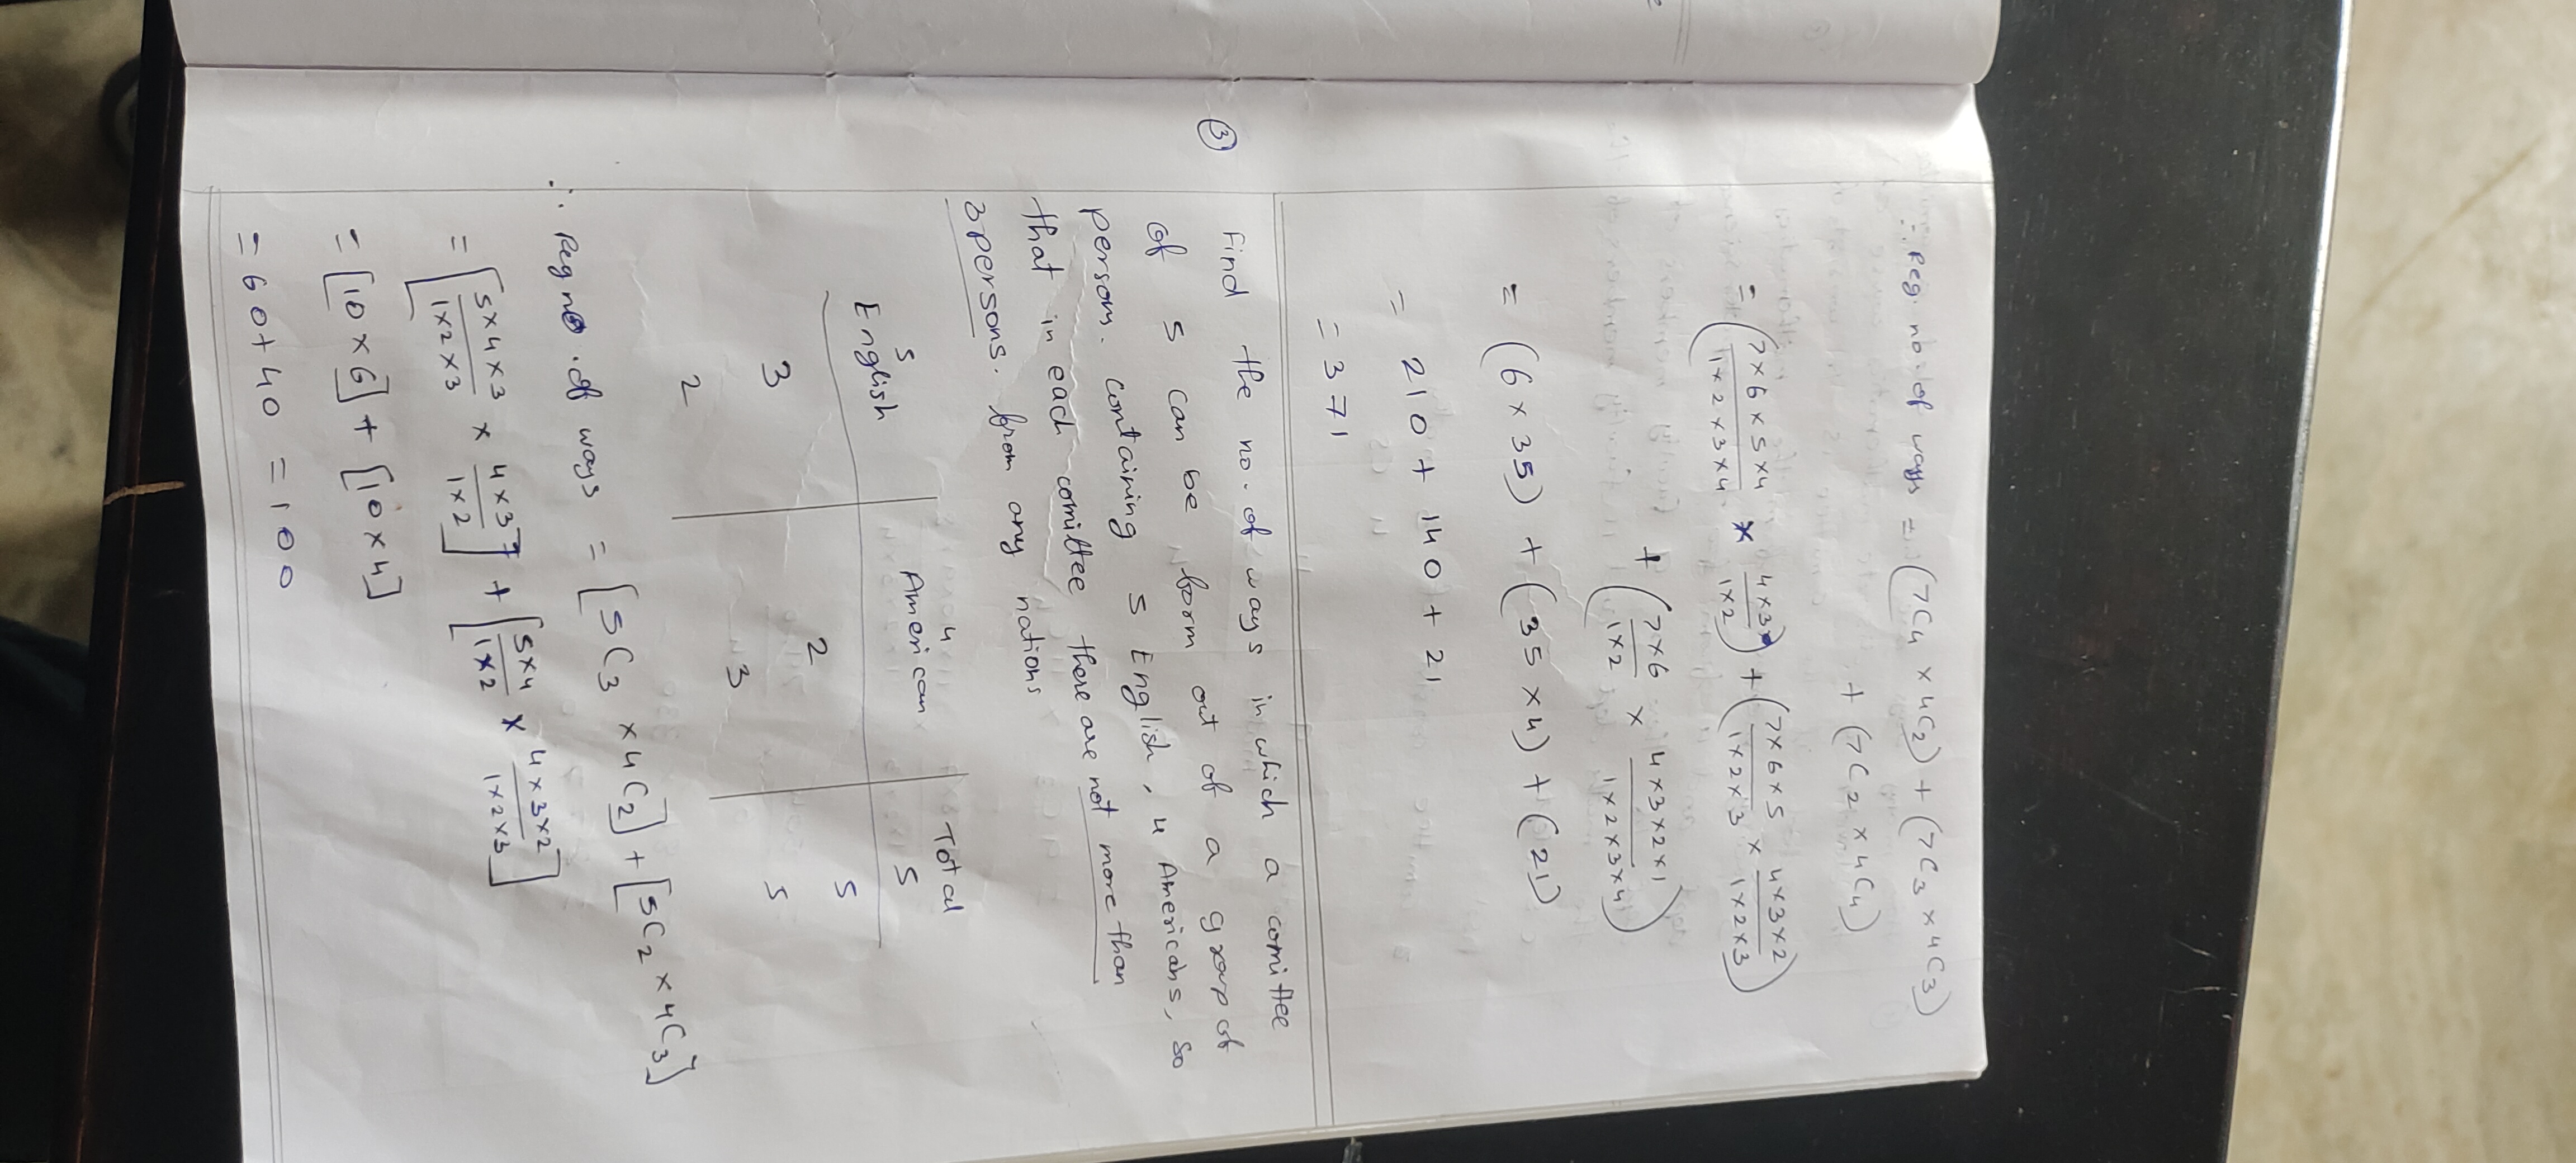 ∴ Req. no. of ways = (7C4 × 4C2) + (7C3 × 4C3)
+ (7C2 × 4C4)
= (7×6×5×4/1×2×3×4 × 4×3/1×2) + (7×6×5/1×2×3 × 4×3×2/1×2×3)
+ (7×6/1×2 × 4×3×2×1/1×2×3×4)
= (6×35) + (35×4) + (21)
= 210 + 140 + 21
= 371
③ Find the no. of ways in which a comittee
of 5 can be form out of a group of
persons. containing 5 English, 4 Americans, so
that in each comittee there are not more than
3 persons. from any nations
5 English 4 American Total 5
3 2 5
2 3 5
∴ Req no. of ways = [5C3 × 4C2] + [5C2 × 4C3]
= [5×4×3/1×2×3 × 4×3/1×2] + [5×4/1×2 × 4×3×2/1×2×3]
= [10×6] + [10×4]
= 60+40 = 100